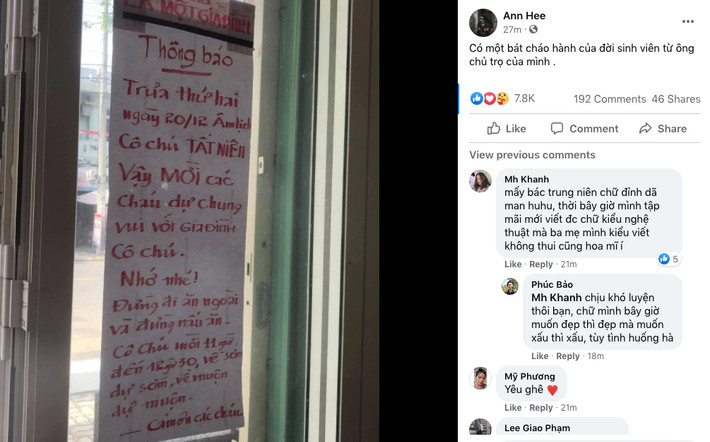 LÀ MỘT GIA ĐÌNH
Thông báo
Trưa thứ hai
ngày 20/12 Âm lịch
Cô chú TẤT NIÊN
Vậy MỜI các
Cháu dự chung
vui với GIA ĐÌNH
Cô chú.
Nhớ nhé!
Đừng đi ăn ngoài
và đừng nấu ăn.
Cô Chú mời 11 giờ
đến 12 giờ 30, về sớm
dự sớm, về muộn
dự muộn.
— Cảm ơn các cháu
Ann Hee
27m ·
Có một bát cháo hành của đời sinh viên từ ông
chủ trọ của mình .
7.8K 192 Comments 46 Shares
Like Comment Share
View previous comments
Mh Khanh
mấy bác trung niên chữ đỉnh dã
man huhu, thời bây giờ mình tập
mãi mới viết đc chữ kiểu nghệ
thuật mà ba mẹ mình kiểu viết
không thui cũng hoa mĩ í
5
Like · Reply · 21m
Phúc Bảo
Mh Khanh chịu khó luyện
thôi bạn, chữ mình bây giờ
muốn đẹp thì đẹp mà muốn
xấu thì xấu, tùy tình huống hà
Like · Reply · 18m
Mỹ Phương
Yêu ghê ❤️
Like · Reply · 21m
Lee Giao Phạm